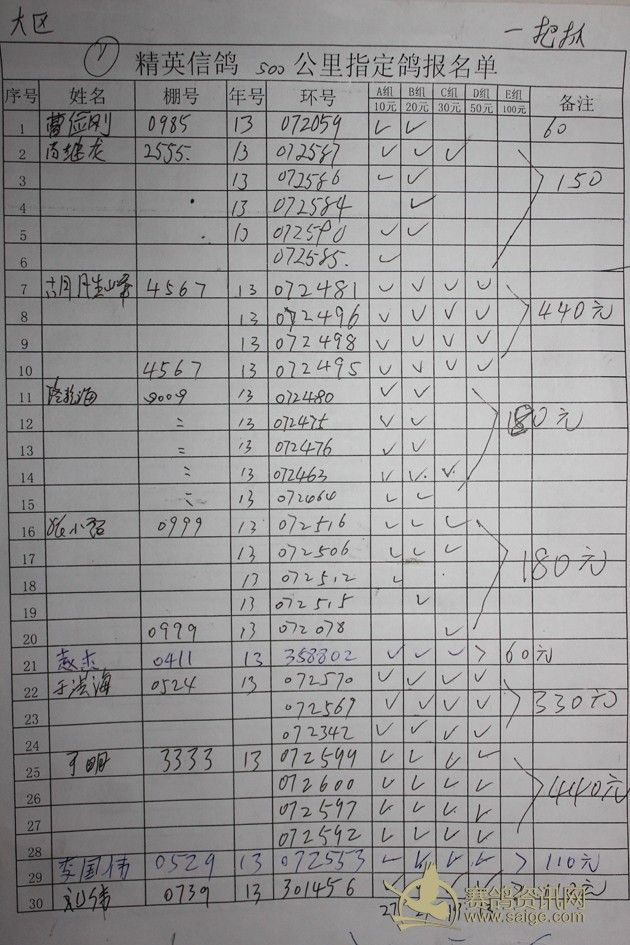 大区
一把抓
精英信鸽 500 公里指定鸽报名单
序号 姓名 棚号 年号 环号 A组10元 B组20元 C组30元 D组50元 E组100元 备注
1 0985 13 072059 ✓ ✓ 60
2 2555. 13 072587 ✓ ✓ ✓ 150
3 13 072586 ✓ ✓
4 13 072584 ✓
5 13 072590 ✓ ✓
6 072585. ✓
7 4567 13 072481 ✓ ✓ ✓ ✓ 440元
8 13 072496 ✓ ✓ ✓ ✓
9 13 072498 ✓ ✓ ✓ ✓
10 4567 13 072495 ✓ ✓ ✓ ✓
11 9009 13 072480 ✓ ✓ 180元
12 = 13 072475 ✓ ✓
13 = 13 072476 ✓ ✓
14 = 13 072463 ✓ ✓ ✓
15 = 13 072464 ✓ ✓
16 张小 0999 13 072516 ✓ ✓ ✓ 180元
17 13 072506 ✓ ✓ ✓
18 13 072512 ✓
19 13 072515 ✓
20 0999 13 072078 ✓
21 赵杰 0411 13 358802 ✓ ✓ ✓ 60元
22 于洪海 0524 13 072570 ✓ ✓ ✓ ✓ 330元
23 072569 ✓ ✓ ✓ ✓
24 072342 ✓ ✓ ✓ ✓
25 于明 3333 13 072599 ✓ ✓ ✓ ✓ 440元
26 072600 ✓ ✓ ✓ ✓
27 072597 ✓ ✓ ✓ ✓
28 072592 ✓ ✓ ✓ ✓
29 李国伟 0529 13 072553 ✓ ✓ ✓ ✓ 110元
30 刘伟 0739 13 301456 ✓ ✓ ✓ ✓
27
赛鸽资讯网
www.saige.com